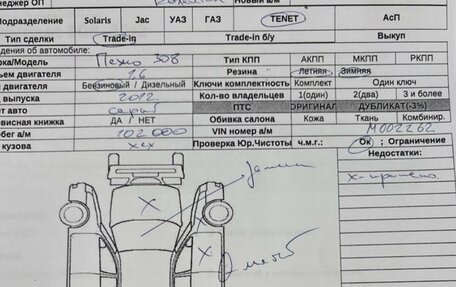 неджер ОП Новый а/м
Подразделение Solaris Jac УАЗ ГАЗ TENET АсП
Тип сделки Trade-in Trade-in б/у Выкуп
дения об автомобиле:
рка/Модель Пежо 308 Тип КПП АКПП МКПП РКПП
ъем двигателя 1,6 Резина Летняя Зимняя
двигателя Бензиновый / Дизельный Ключи комплектность Комплект Один ключ
выпуска 2012 Кол-во владельцев 1(один) 2(два) 3 и более
ет авто серый ПТС ОРИГИНАЛ ДУБЛИКАТ(-3%)
рвисная книжка ДА / НЕТ Обивка салона Кожа Ткань Комбинир.
бег а/м 102 000 VIN номер а/м М002262
кузова хех Проверка Юр.Чистоты ч.м.г.: Ок ; Ограничение
Недостатки:
х-крашено
X
X